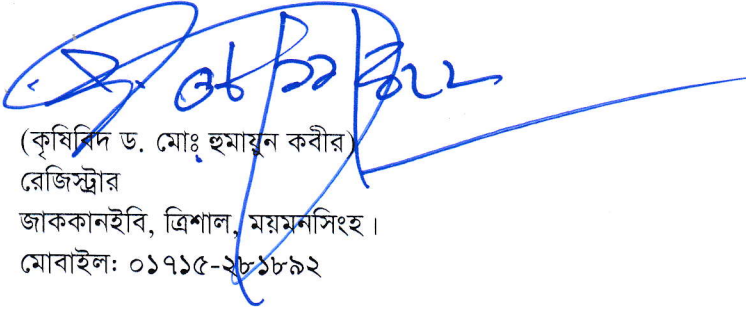 ০৮/১১/২০২২
(কৃষিবিদ ড. মোঃ হুমায়ুন কবীর)
রেজিস্ট্রার
জাককানইবি, ত্রিশাল, ময়মনসিংহ।
মোবাইলঃ ০১৭১৫-২৮১৮৯২